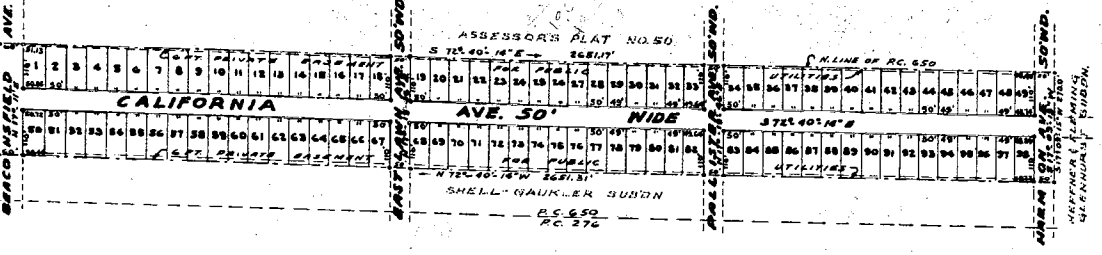 ASSESSORS PLAT NO. 50.
S 72°-40'-14"E → 2651.17'
N. LINE OF P.C. 650
6 FT. PRIVATE EASEMENT FOR PUBLIC UTILITIES
1 2 3 4 5 6 7 8 9 10 11 12 13 14 15 16 17 18
19 20 21 22 23 24 25 26 27 28 29 30 31 32 33
34 35 36 37 38 39 40 41 42 43 44 45 46 47 48 49
CALIFORNIA AVE. 50' WIDE
S 72°-40'-14" E
50 51 52 53 54 55 56 57 58 59 60 61 62 63 64 65 66 67
68 69 70 71 72 73 74 75 76 77 78 79 80 81 82
83 84 85 86 87 88 89 90 91 92 93 94 95 96 97 98
6 FT. PRIVATE EASEMENT FOR PUBLIC UTILITIES
N 72°-40'-14"W 2651.31'
SHELL-GAUKLER SUBDN
P.C. 650
P.C. 276
BEACONSFIELD AVE.
EASTLAWN AVE. 50'WD
HARMON 50'WD.
HEFFNER & FLEMING
GLENHURST SUBDN.